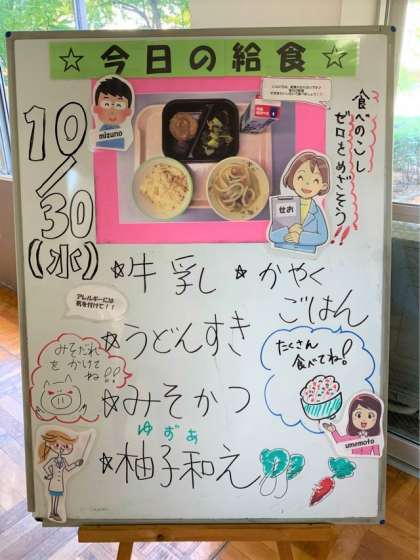 ☆今日の給食☆
10/30(水)
mizuno
食べのこし
ゼロをめざそう!!
せお
☆牛乳し ☆かやく
ごはん
アレルギーには
気を付けて!!
☆うどんすき
みそだれ
をかけて
ね!!
たくさん
食べてね!
☆みそかつ
ゆずあ
☆柚子和え
umemoto